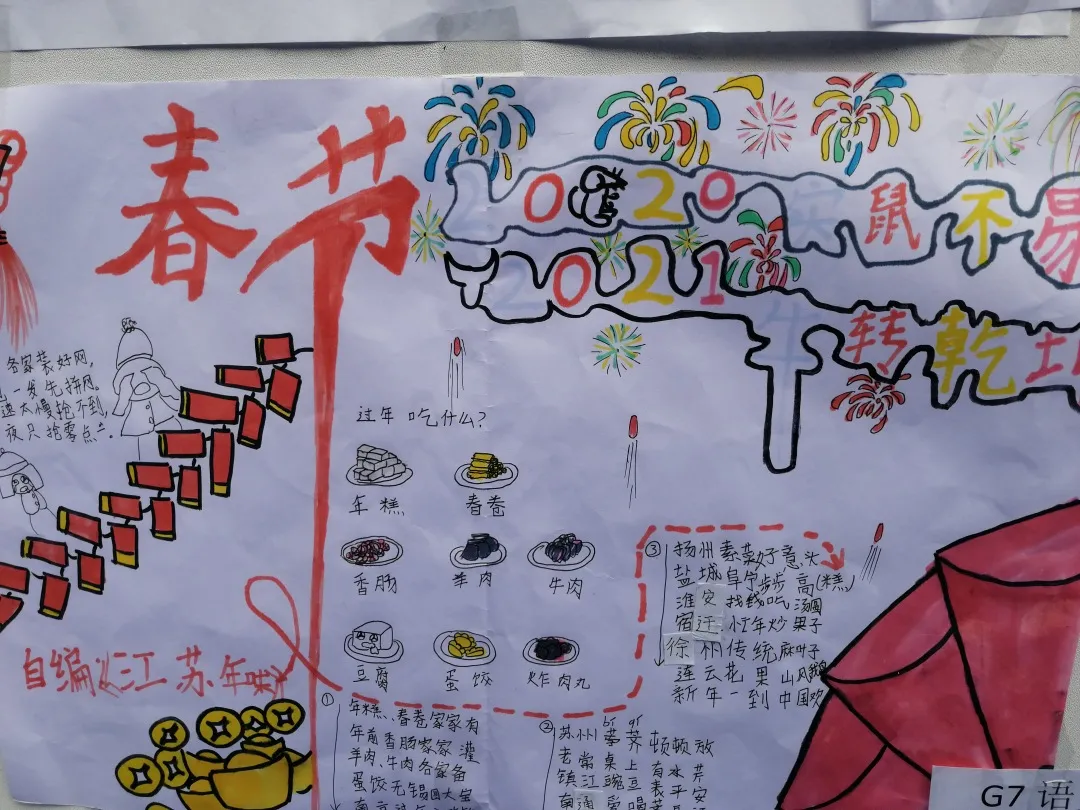 春节
2020 实鼠不易
2021 牛转乾坤
各家装好网,
一发先拼网。
速太慢抢不到,
夜只抢零点
过年吃什么?
年糕 春卷
香肠 羊肉 牛肉
豆腐 蛋饺 炸肉丸
自编《江苏·年味》
① 年糕、春卷家家有
年前香肠家家灌
羊肉、牛肉各家备
蛋饺无锡四大宝
② 苏州荸荠顿顿放
bí qí
老常桌上有水芹
镇江豌豆表平安
③ 扬州素菜好意头
盐城阜宁步步高(糕)
淮安找钱吃汤圆
宿迁小年炒果子
徐州传统麻叶子
连云花果山风鹅
新年一到中国欢
G7 语